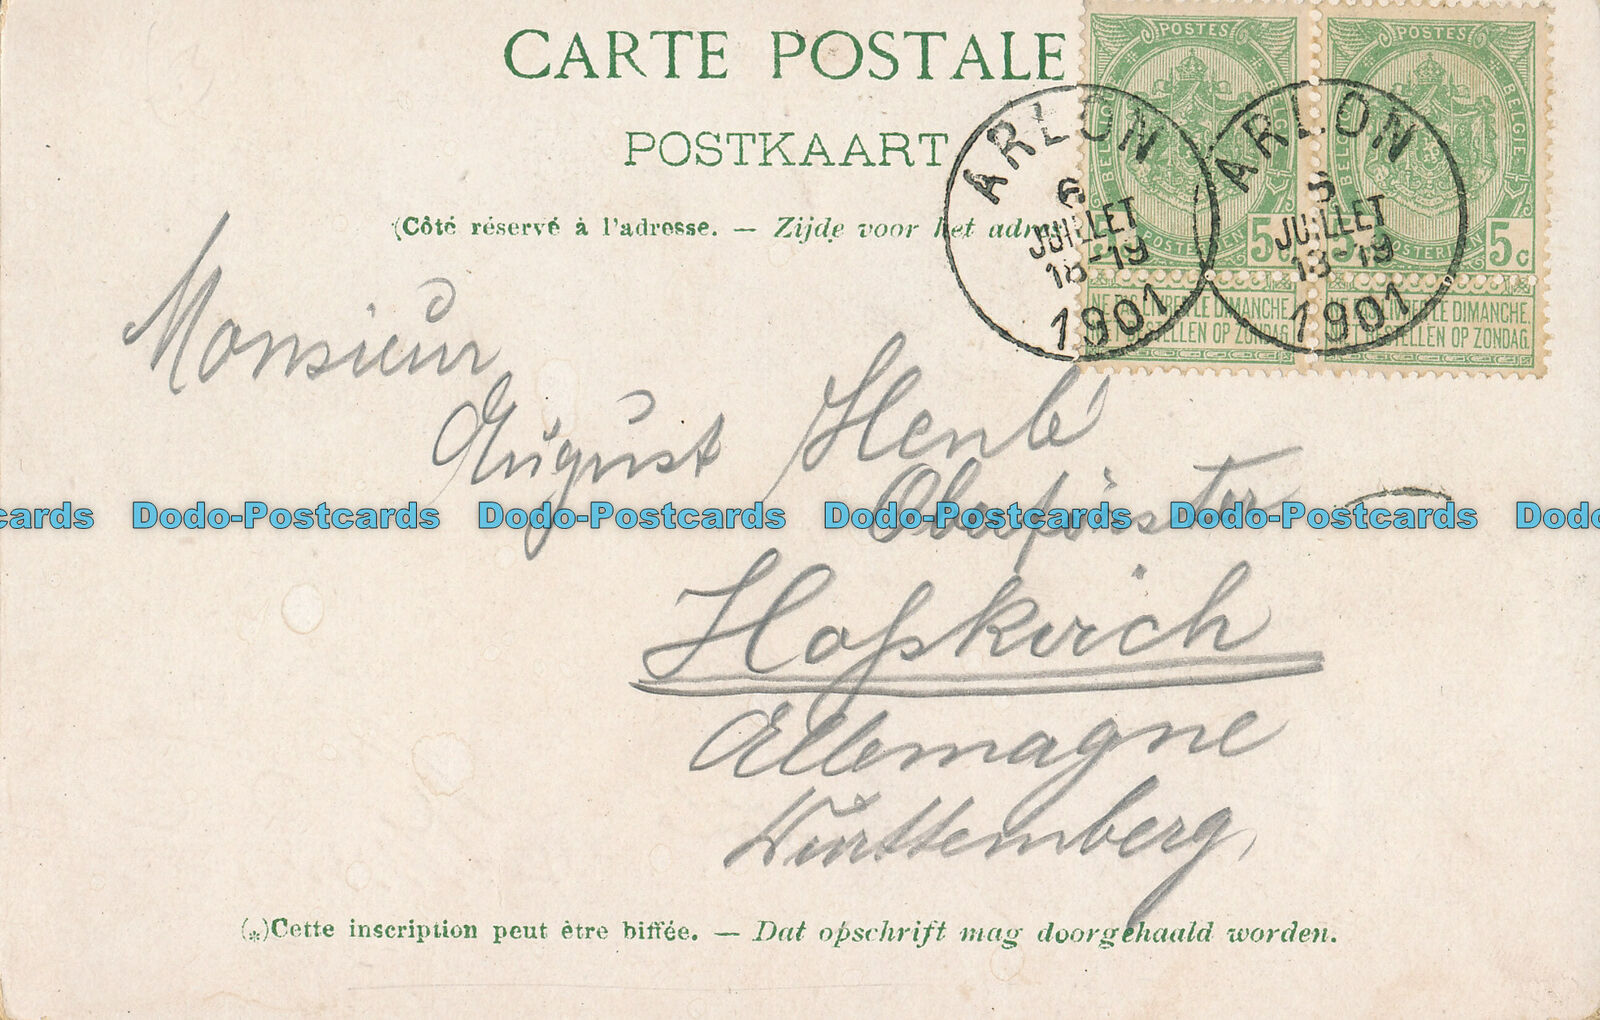 CARTE POSTALE
POSTKAART
(Côté réservé à l'adresse. — Zijde voor het
POSTES
BELGIQUE
BELGIE
POSTERIJEN
5c
NE PAS LIVRER LE DIMANCHE
NIET BESTELLEN OP ZONDAG.
POSTES
BELGIQUE
BELGIE
POSTERIJEN
5c
NE PAS LIVRER LE DIMANCHE
NIET BESTELLEN OP ZONDAG.
ARLON
6
JUILLET
18-19
1901
ARLON
6
JUILLET
18-19
1901
Monsieur
August Henle
Oberförster
Hoskirch
Allemagne
Württemberg,
Dodo-Postcards Dodo-Postcards Dodo-Postcards Dodo-Postcards
(*)Cette inscription peut être biffée. — Dat opschrift mag doorgehaald worden.